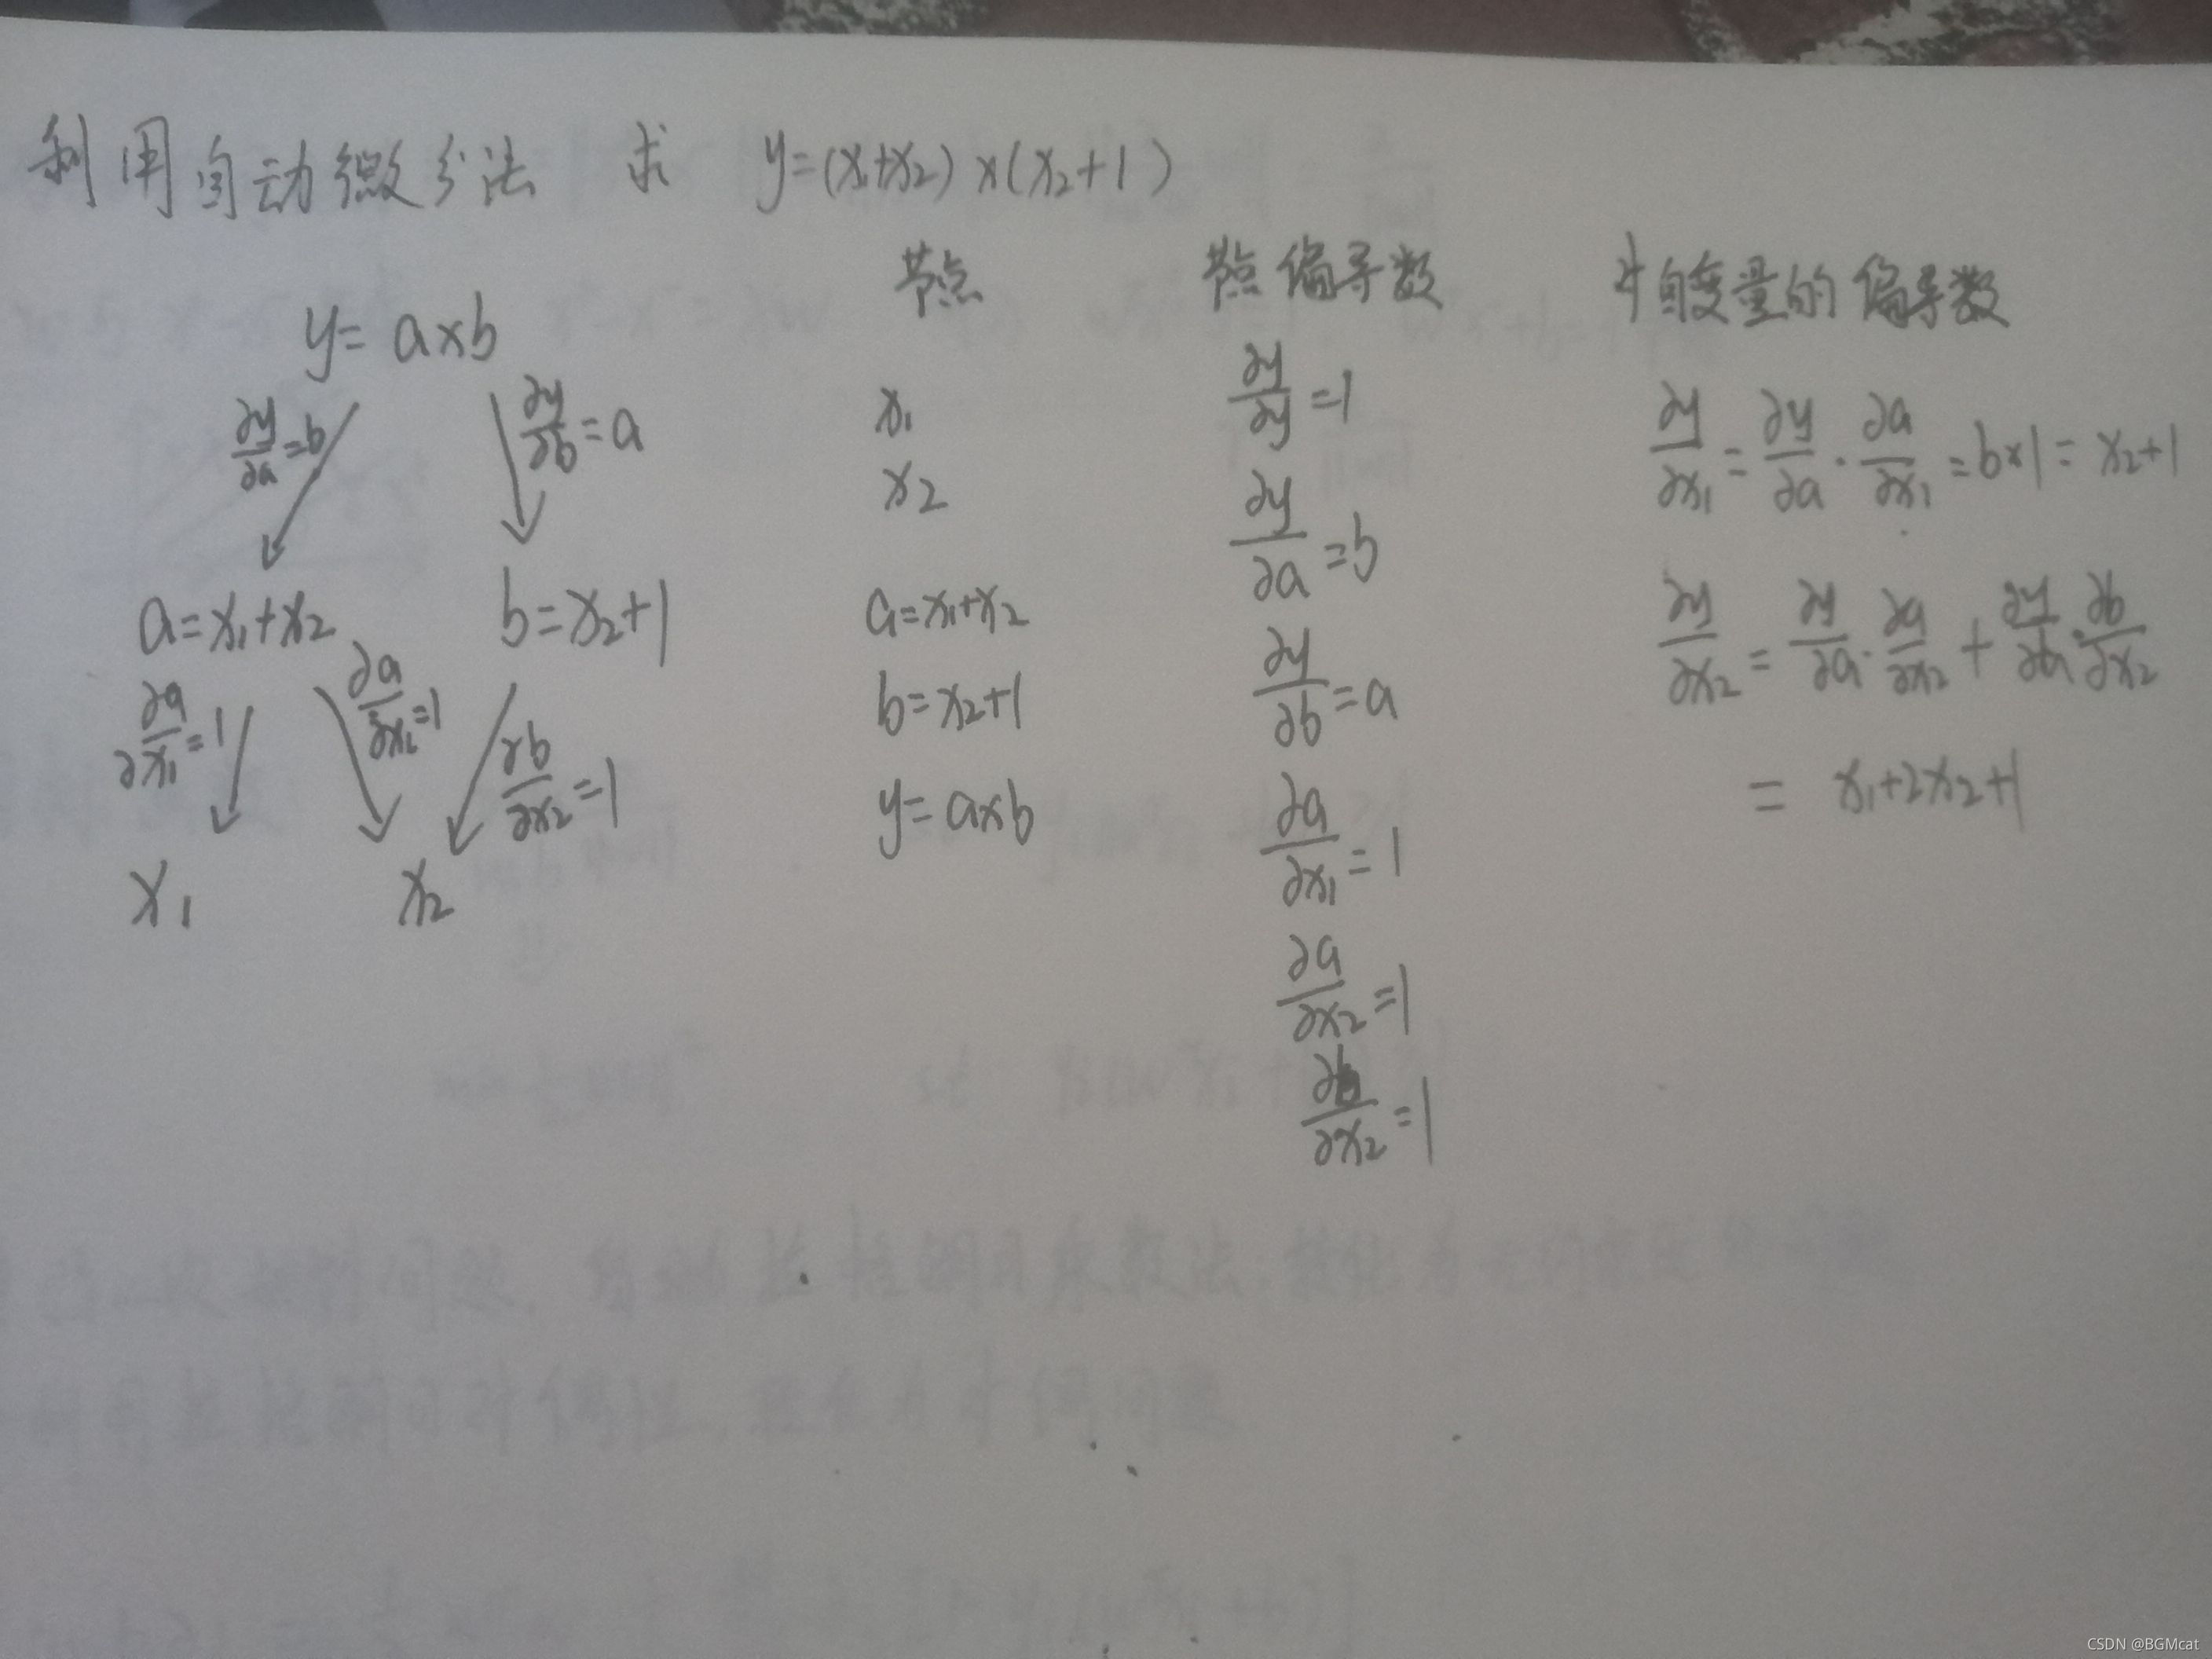 利用自动微分法 求 y=(x₁+x₂)×(x₂+1)
y= a×b
∂y/∂a=b
∂y/∂b=a
a=x₁+x₂
b=x₂+1
∂a/∂x₁=1
∂a/∂x₂=1
∂b/∂x₂=1
x₁
x₂
节点
x₁
x₂
a=x₁+x₂
b=x₂+1
y=a×b
节点偏导数
∂y/∂y=1
∂y/∂a=b
∂y/∂b=a
∂a/∂x₁=1
∂a/∂x₂=1
∂b/∂x₂=1
自变量的偏导数
∂y/∂x₁=∂y/∂a·∂a/∂x₁=b×1=x₂+1
∂y/∂x₂=∂y/∂a·∂a/∂x₂+∂y/∂b·∂b/∂x₂
= x₁+2x₂+1
CSDN @BGMcat